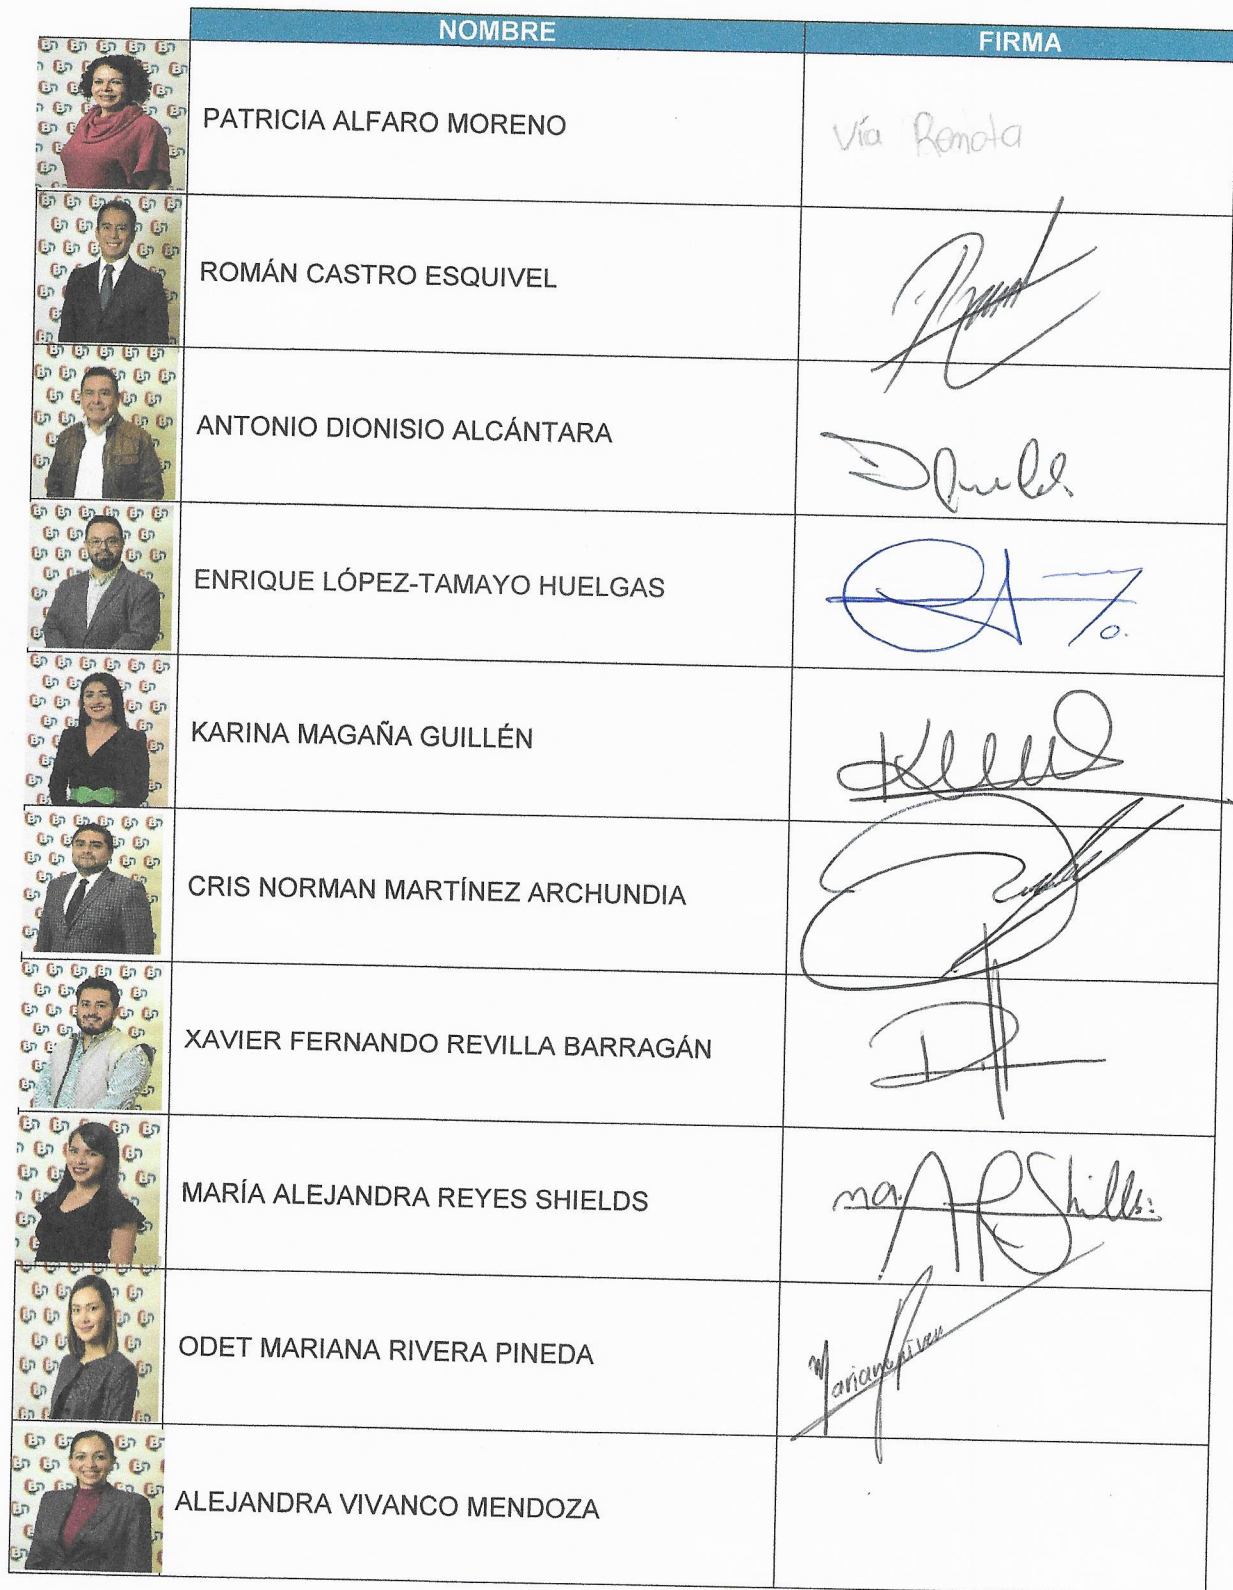 NOMBRE FIRMA
PATRICIA ALFARO MORENO Vía Remota
ROMÁN CASTRO ESQUIVEL
ANTONIO DIONISIO ALCÁNTARA
ENRIQUE LÓPEZ-TAMAYO HUELGAS
KARINA MAGAÑA GUILLÉN
CRIS NORMAN MARTÍNEZ ARCHUNDIA
XAVIER FERNANDO REVILLA BARRAGÁN
MARÍA ALEJANDRA REYES SHIELDS
ODET MARIANA RIVERA PINEDA
ALEJANDRA VIVANCO MENDOZA